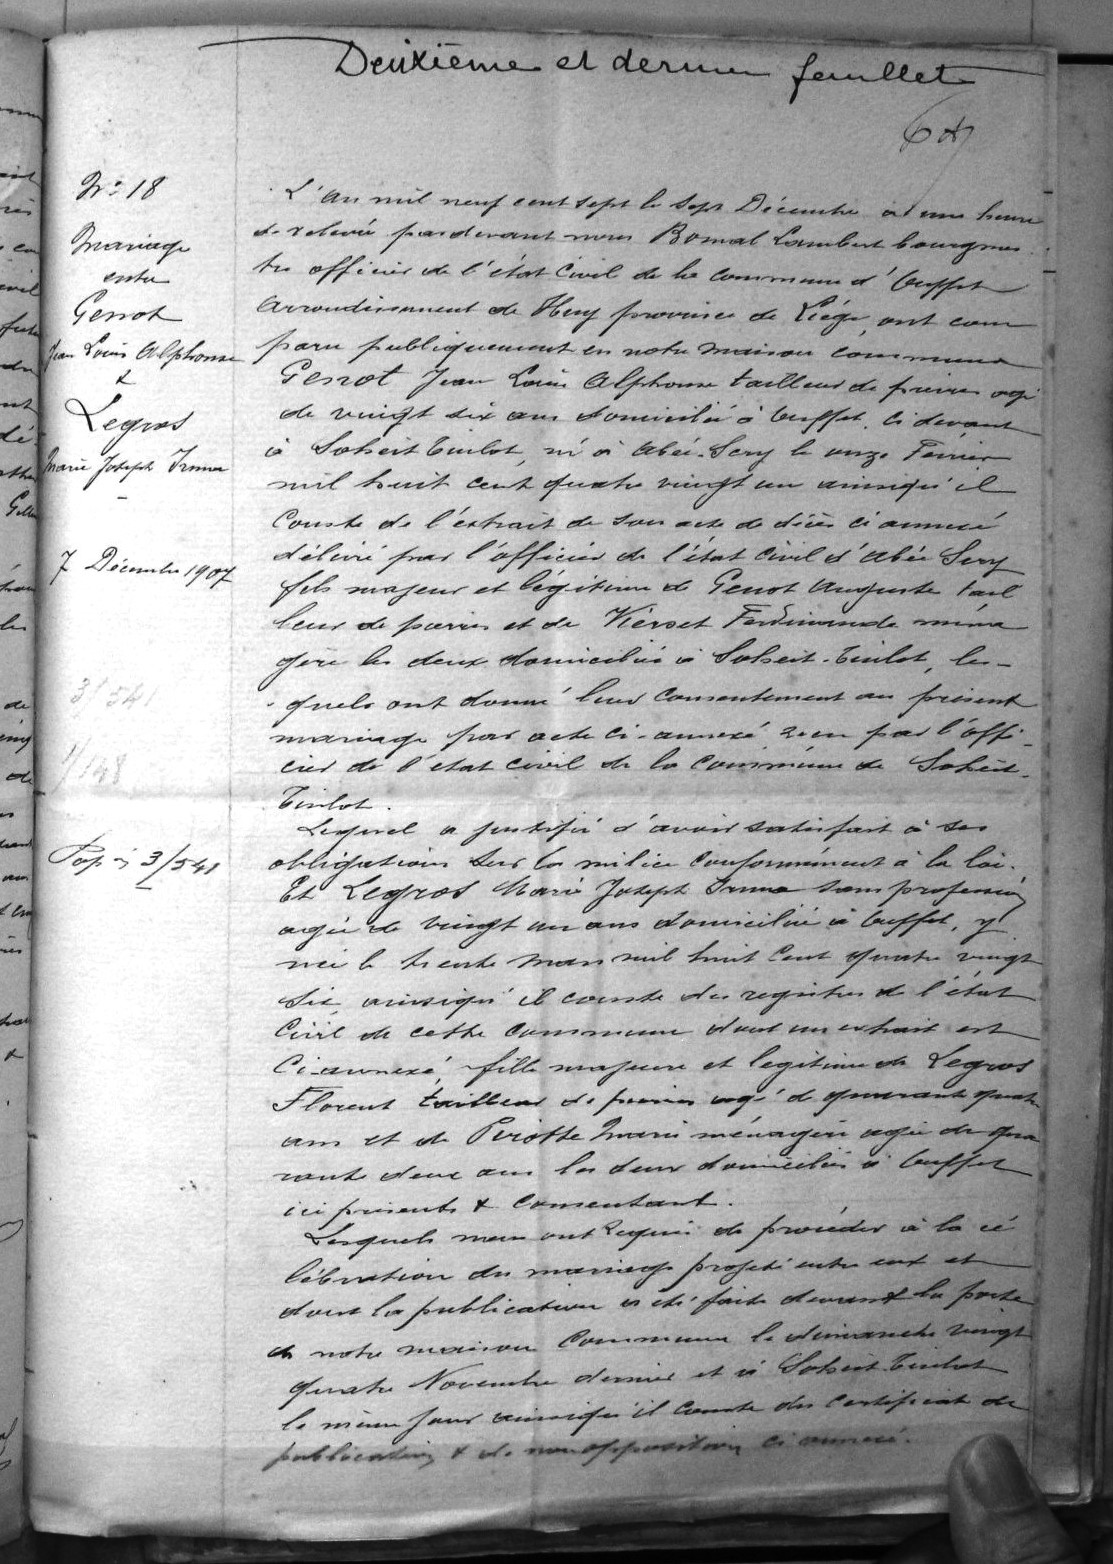 Deuxième et dernier feuillet
No 18
Mariage
entre
Genot
Jean Louis Alphonse
&
Legros
Marie Joseph Irma
7 Décembre 1907
3/541
1/148
Pop. 3/541
L'an mil neuf cent sept le sept Décembre à une heure
de relevée pardevant nous Bomal Lambert bourgmes
tre officier de l'état Civil de la Commune d'Ouffet
arrondissement de Huy province de Liège, ont com
paru publiquement en notre maison commune
Genot Jean Louis Alphonse tailleur de pierres agé
de vingt six ans domicilié à Ouffet, ci devant
à Soheit-Tinlot, né à Abée-Scry le onze Février
mil huit cent quatre vingt un ainsiqu'il
Conste de l'extrait de son acte de ci annexé
délivré par l'officier de l'état civil d'Abée Scry
fils majeur et légitime de Genot Auguste tail
leur de pierres et de Kerset Ferdinande ména
gère les deux domiciliés à Soheit-Tinlot, les-
quels ont donné leur Consentement au présent
mariage par acte ci-annexé reçu par l'offi-
cier de l'état civil de la Commune de Soheit-
Tinlot.
Lequel a justifié d'avoir satisfait à ses
obligations sur la milice Conformément à la loi.
Et Legros Marie Joseph Irma sans profession
agée de vingt un ans domiciliée à Ouffet, y
née le trente mars mil huit Cent quatre vingt
six ainsiqu'il conste des registres de l'état
Civil de cette Commune dont un extrait est
Ci-annexé, fille majeure et legitime de Legros
Florent tailleur de pierres agé de quarante quatre
ans et de Pirotte Marie ménagère agée de qua
rante deux ans les deux domiciliés à Ouffet
ici présents & consentant.
Lesquels nous ont requis de procéder à la cé
lébration du mariage projeté entre eux et
dont la publication a été faite devant la porte
de notre maison Commune le dimanche vingt
quatre Novembre dernier et à Soheit-Tinlot
le même jour ainsiqu'il conste du certificat de
publication & de non opposition ci annexé.